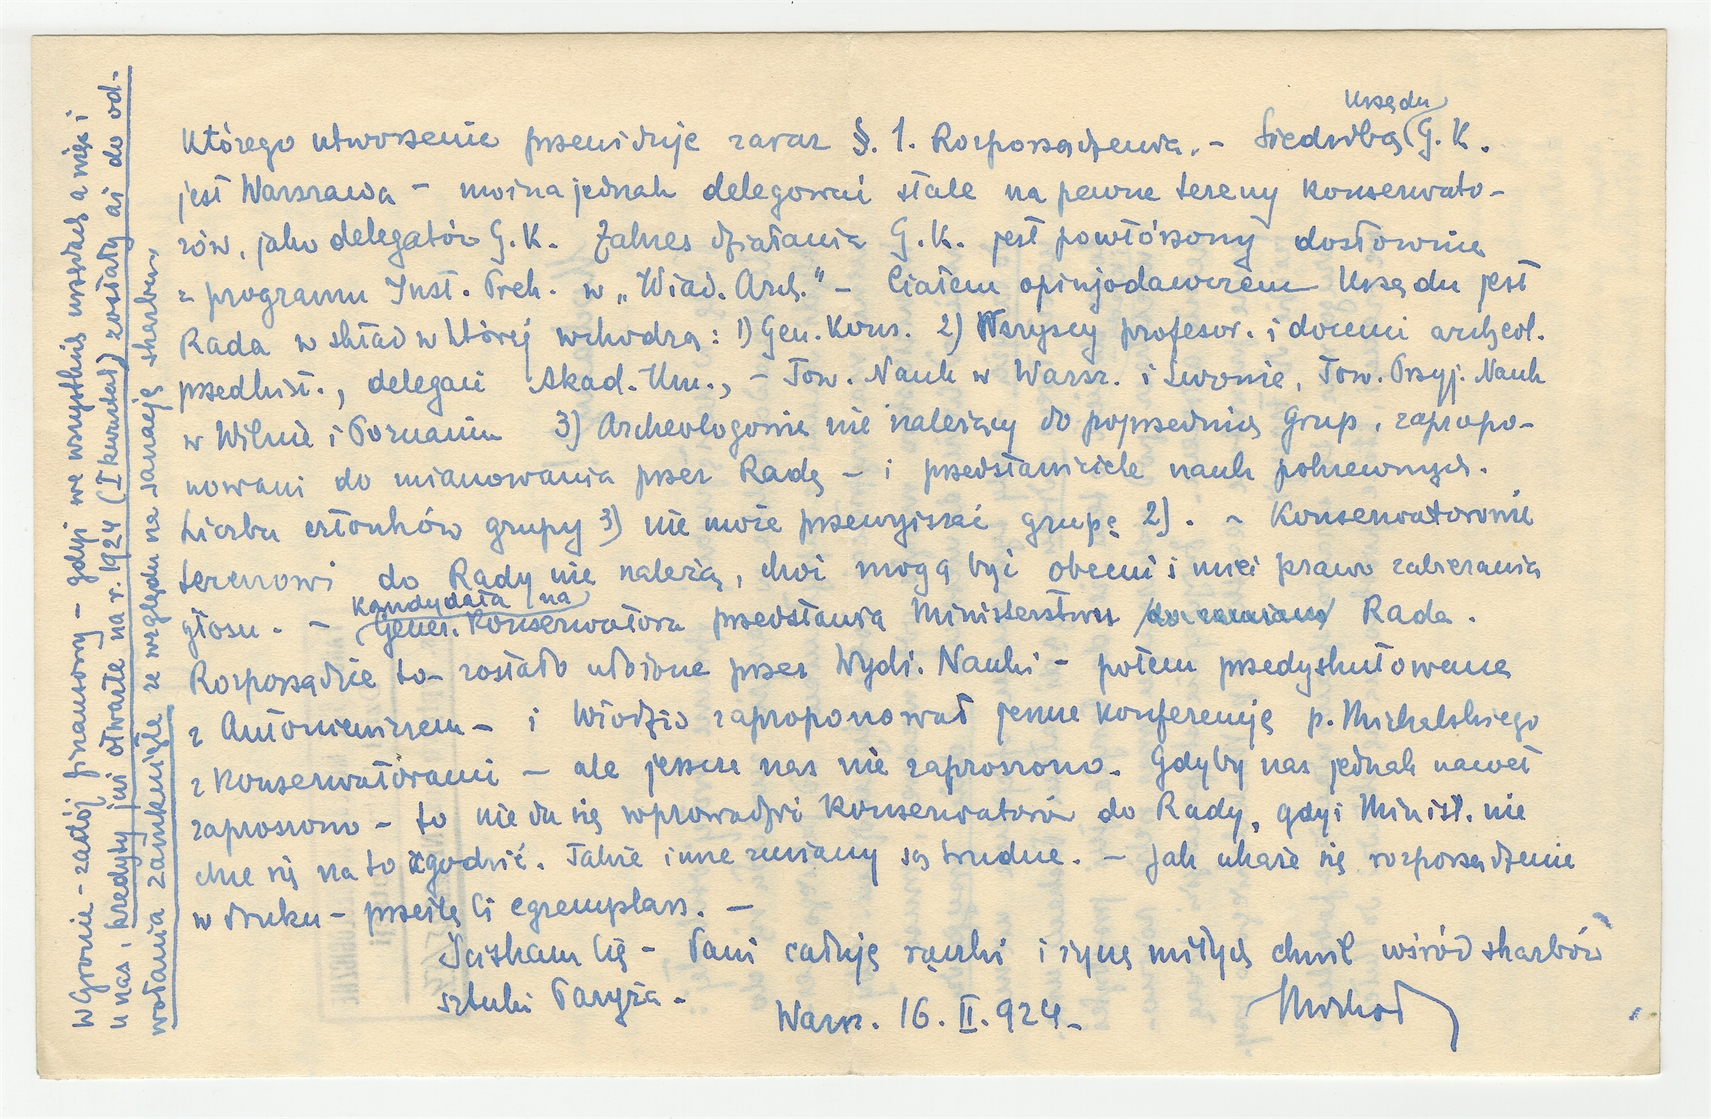 którego utworzenie przewiduje zaraz §. 1. Rozporządzenia. – Siedzibą Urzędu G. K.
jest Warszawa – można jednak delegować stale na pewne tereny konserwato-
rów, jako delegatów G. K. Zakres działania G. K. jest powtórzony dosłownie
z programu Inst. Preh. w „Wiad. Arch." – Ciałem opinjodawczem Urzędu jest
Rada w skład w której wchodzą: 1) Gen. Kons. 2) Wszyscy profesor. i docenci archeol.
przedhist., delegaci Akad. Um., – Tow. Nauk w Warsz. i Lwowie, Tow. Przyj. Nauk
w Wilnie i Poznaniu 3) Archeologowie nie należący do poprzednich grup, zapropo-
nowani do mianowania przez Radę – i przedstawiciele nauk pokrewnych.
Liczba członków grupy 3) nie może przewyższać grupę 2). – Konserwatorowie
terenowi do Rady nie należą, choć mogą być obecni i mieć prawo zabierania
głosu. – Kandydata na Gener. Konserwatora przedstawia Ministerstwu Rada.
Rozporządzenie to – zostało ułożone przez Wydz. Nauki – potem przedyskutowane
z Antoniewiczem – i Włodzio zaproponował pewne konferencje p. Michalskiego
z Konserwatorami – ale jeszcze nas nie zaproszono. Gdyby nas jednak nawet
zaproszono – to nie da się wprowadzić Konserwatorów do Rady, gdyż Minist. nie
chce się na to zgodzić. Także inne zmiany są trudne. – Jak ukaże się rozporządzenie
w druku – prześlę Ci egzemplarz. –
Ściskam Cię – Pani całuję rączki i życzę miłych chwil wśród skarbów
sztuki Paryża.
Warsz. 16. II. 924.
W Gronie – zastój finansowy – gdyż we wszystkich urzędach a więc i
u nas, kredyty już otwarte na r. 1924 (I kwartał) zostały aż do od-
wołania zamknięte ze względu na sanację skarbu.